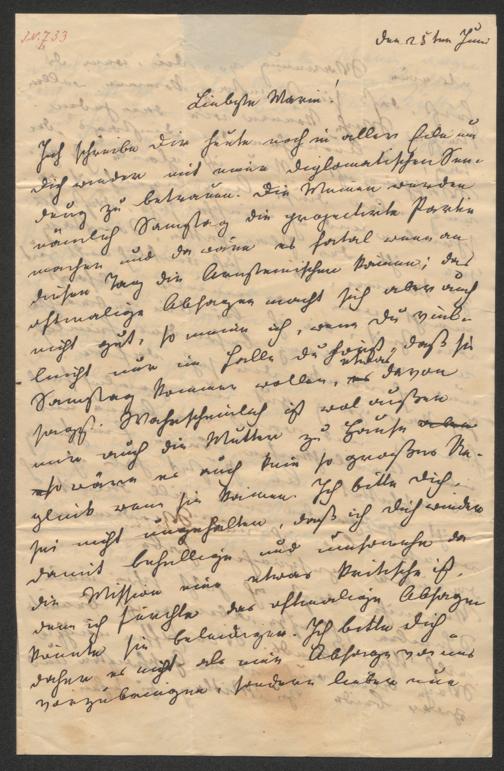 I.N. 733
den 25ten Juni
Liebste Marie!
Ich schreibe Dir heute noch in aller Eile um
Dich wieder mit einer diplomatischen Sen-
dung zu betrauen. Die Meinen werden
nämlich Samstag die projectirte Partie
machen und da wäre es fatal wenn an
diesem Tag die kämen; das
oftmalige Absagen macht sich aber auch
nicht gut, so meine ich, wenn Du viel-
leicht nur im Falle Du hörst, daß sie
Samstag kommen wollen, etwas davon
sagst. Wahrscheinlich ist wol außer
mir auch die Mutter zu Hause
so wäre es auch kein so großes Un-
glück wenn sie kämen. Ich bitte Dich
sei nicht ungehalten, daß ich Dich wieder
damit behellige und umsomehr da
die Mission eine etwas kritische ist,
denn ich fürchte das oftmalige Absagen
könnte sie beleidigen. Ich bitte Dich
daher es nicht als eine Absage von uns
vorzubringen, sondern lieber nur